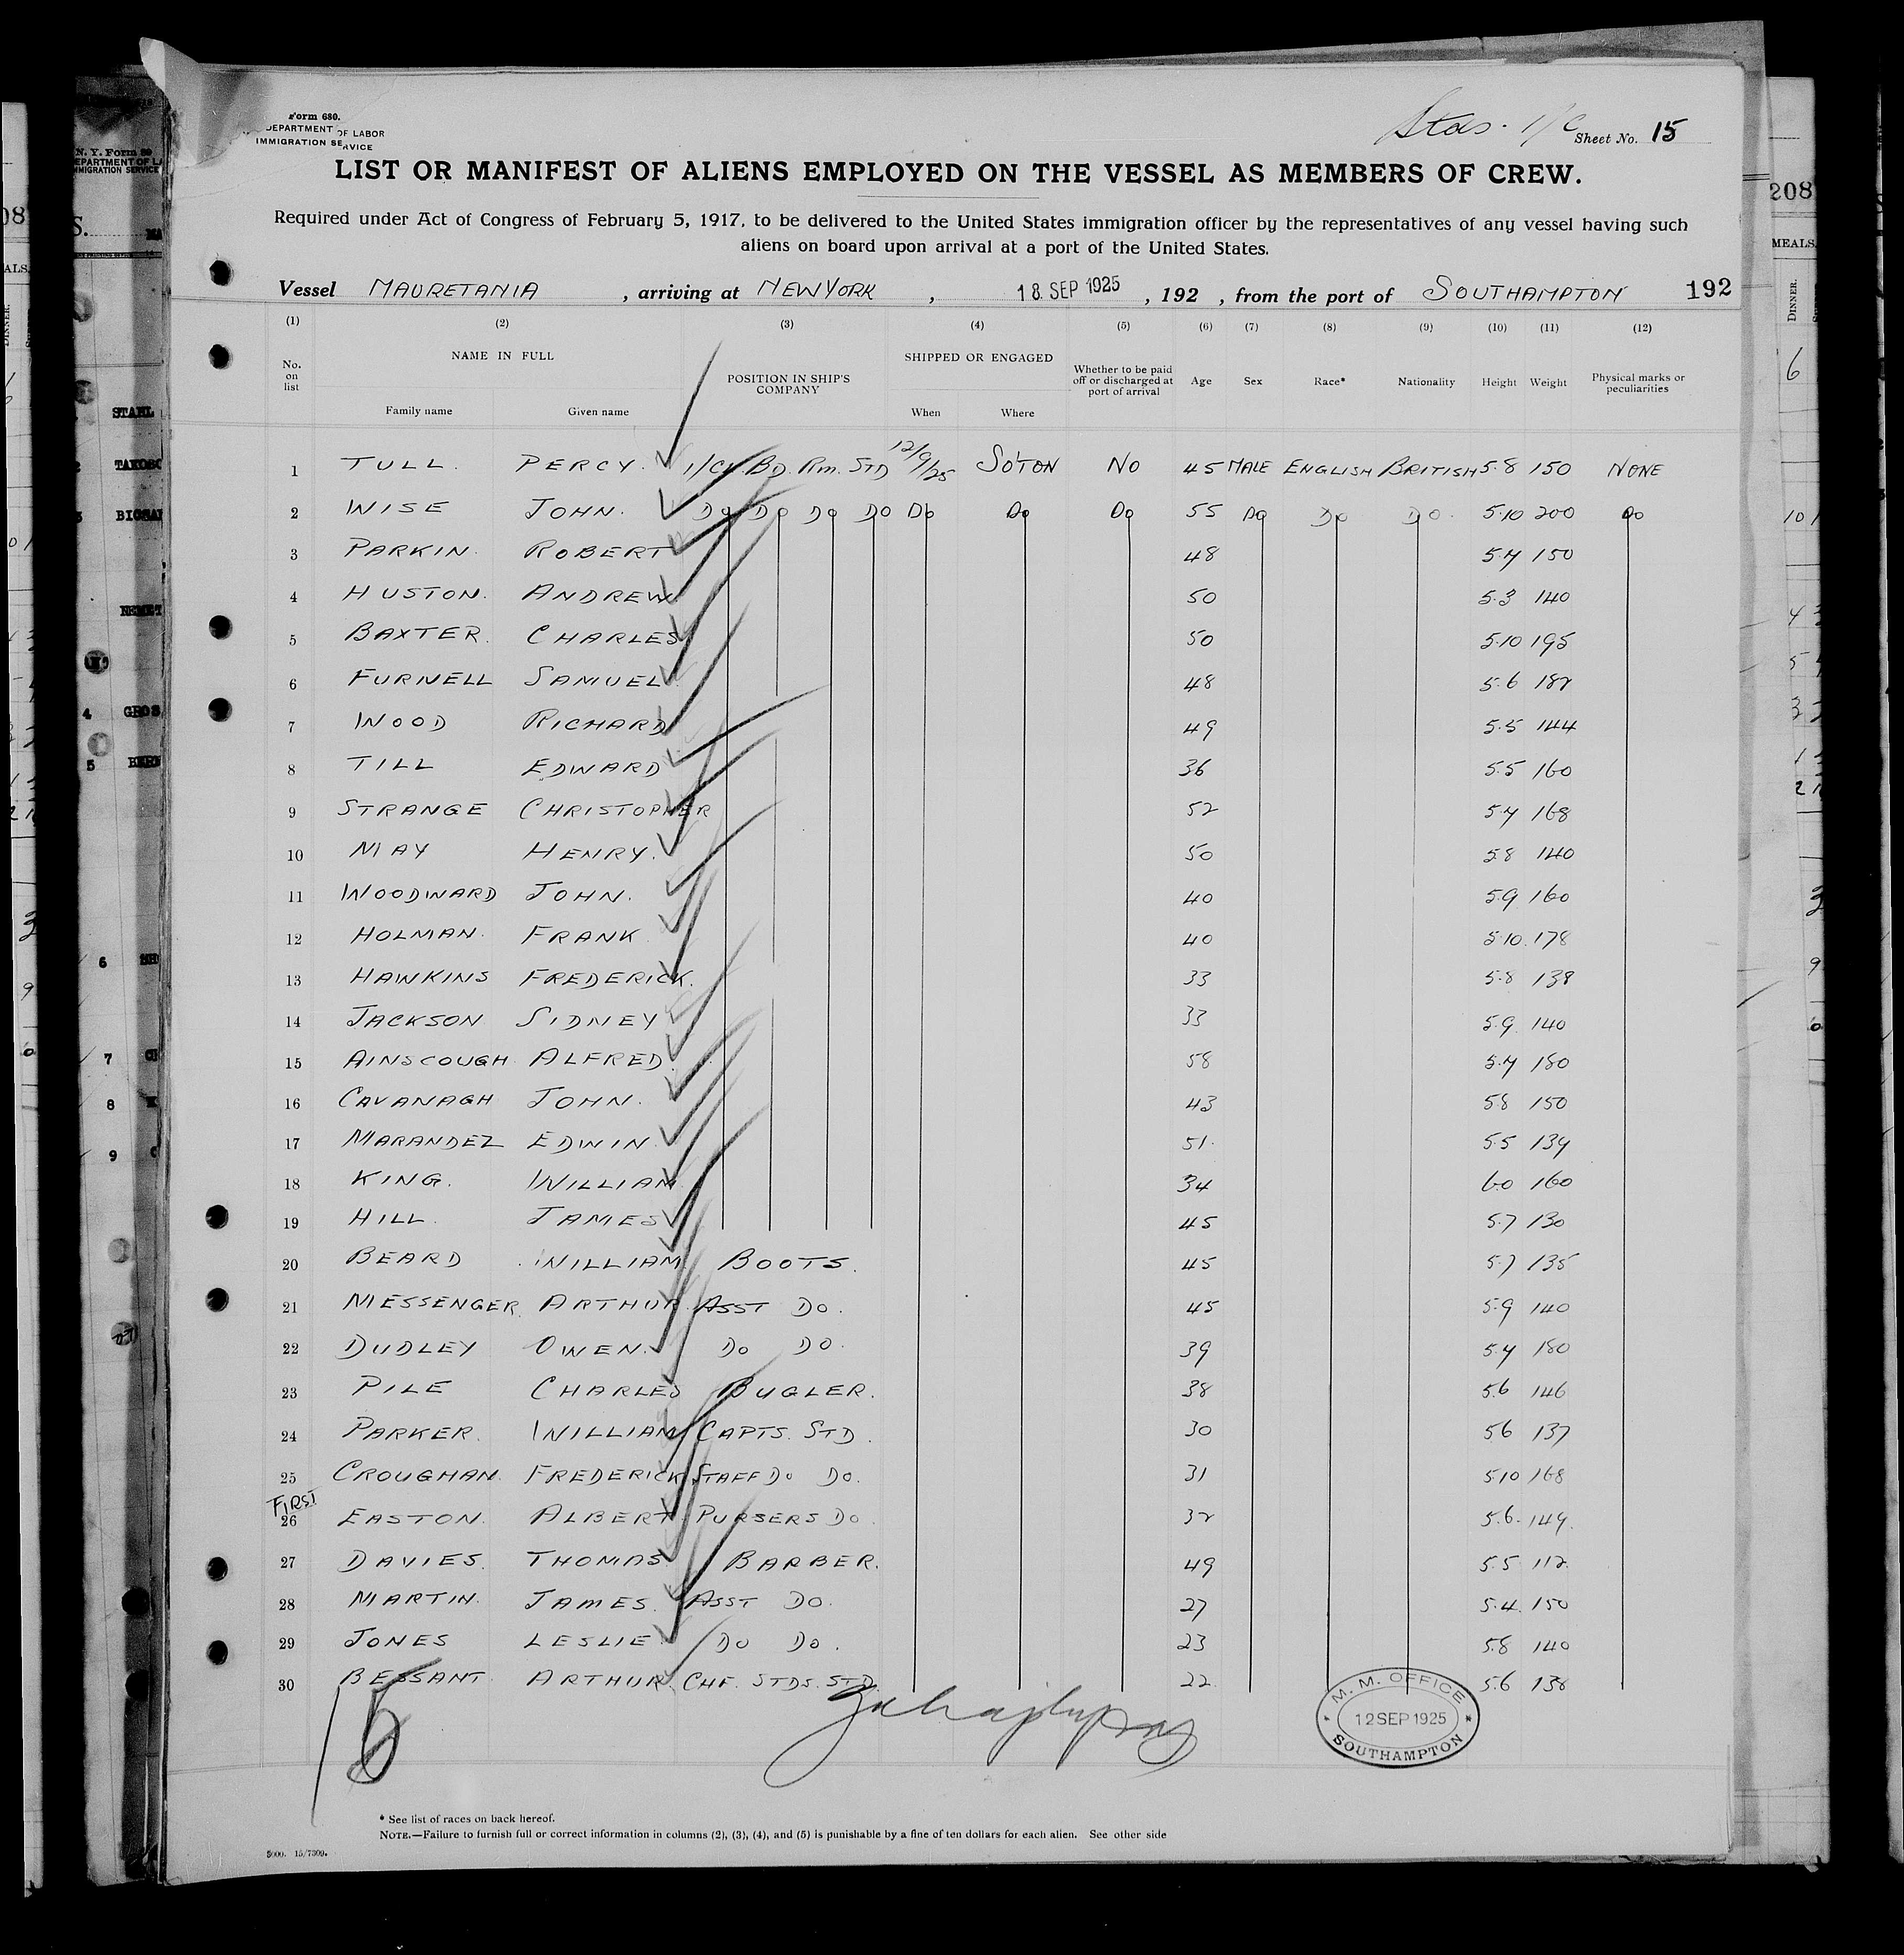 Form 680.
DEPARTMENT OF LABOR
IMMIGRATION SERVICE
Stds. 1/C Sheet No. 15
LIST OR MANIFEST OF ALIENS EMPLOYED ON THE VESSEL AS MEMBERS OF CREW.
Required under Act of Congress of February 5, 1917, to be delivered to the United States immigration officer by the representatives of any vessel having such
aliens on board upon arrival at a port of the United States.
Vessel MAURETANIA, arriving at NEW YORK, 18 SEP 1925, 192 , from the port of SOUTHAMPTON 192
(1) (2) (3) (4) (5) (6) (7) (8) (9) (10) (11) (12)
No. on list NAME IN FULL POSITION IN SHIP'S COMPANY SHIPPED OR ENGAGED Whether to be paid off or discharged at port of arrival Age Sex Race* Nationality Height Weight Physical marks or peculiarities
Family name Given name When Where
1 TULL. PERCY. 1/Cl. BD. Rm. STD 12/9/25 SO'TON NO 45 MALE ENGLISH BRITISH 5.8 150 NONE
2 WISE JOHN. Do Do Do Do Do Do Do 55 Do Do Do. 5.10 200 Do
3 PARKIN. ROBERT 48 5.4 150
4 HUSTON. ANDREW 50 5.3 140
5 BAXTER. CHARLES 50 5.10 195
6 FURNELL SAMUEL 48 5.6 182
7 WOOD RICHARD 49 5.5 144
8 TILL EDWARD 36 5.5 160
9 STRANGE CHRISTOPHER 52 5.4 168
10 MAY HENRY. 50 5.8 140
11 WOODWARD JOHN. 40 5.9 160
12 HOLMAN. FRANK 40 5.10. 178
13 HAWKINS FREDERICK. 33 5.8 138
14 JACKSON SIDNEY 33 5.9. 140
15 AINSCOUGH. ALFRED. 58 5.4 180
16 CAVANAGH JOHN. 43 5.8 150
17 MARANDEZ EDWIN. 51. 5.5 139
18 KING. WILLIAM 34 6.0 160
19 HILL. JAMES 45 5.7 130
20 BEARD WILLIAM BOOTS. 45 5.7 135
21 MESSENGER. ARTHUR. ASST DO. 45 5.9 140
22 DUDLEY OWEN. Do DO. 39 5.4 180
23 PILE CHARLES BUGLER. 38 5.6 146
24 PARKER. WILLIAM CAPTS. STD. 30 5.6 137
25 CROUGHAN. FREDERICK STAFF Do Do. 31 5.10 168
FIRST
26 EASTON. ALBERT PURSERS DO. 32 5.6. 149.
27 DAVIES. THOMAS BARBER. 49 5.5 112
28 MARTIN. JAMES. ASST DO. 27 5.4. 150
29 JONES LESLIE. Do Do. 23 5.8 140
30 BESSANT. ARTHUR. CHF. STDS. STD. 22 5.6 138
15
M. M. OFFICE
12 SEP 1925
SOUTHAMPTON
* See list of races on back hereof.
NOTE.—Failure to furnish full or correct information in columns (2), (3), (4), and (5) is punishable by a fine of ten dollars for each alien. See other side
5000. 15/7309.
N. Y. Form
STAHL
208
MEALS.
DINNER.